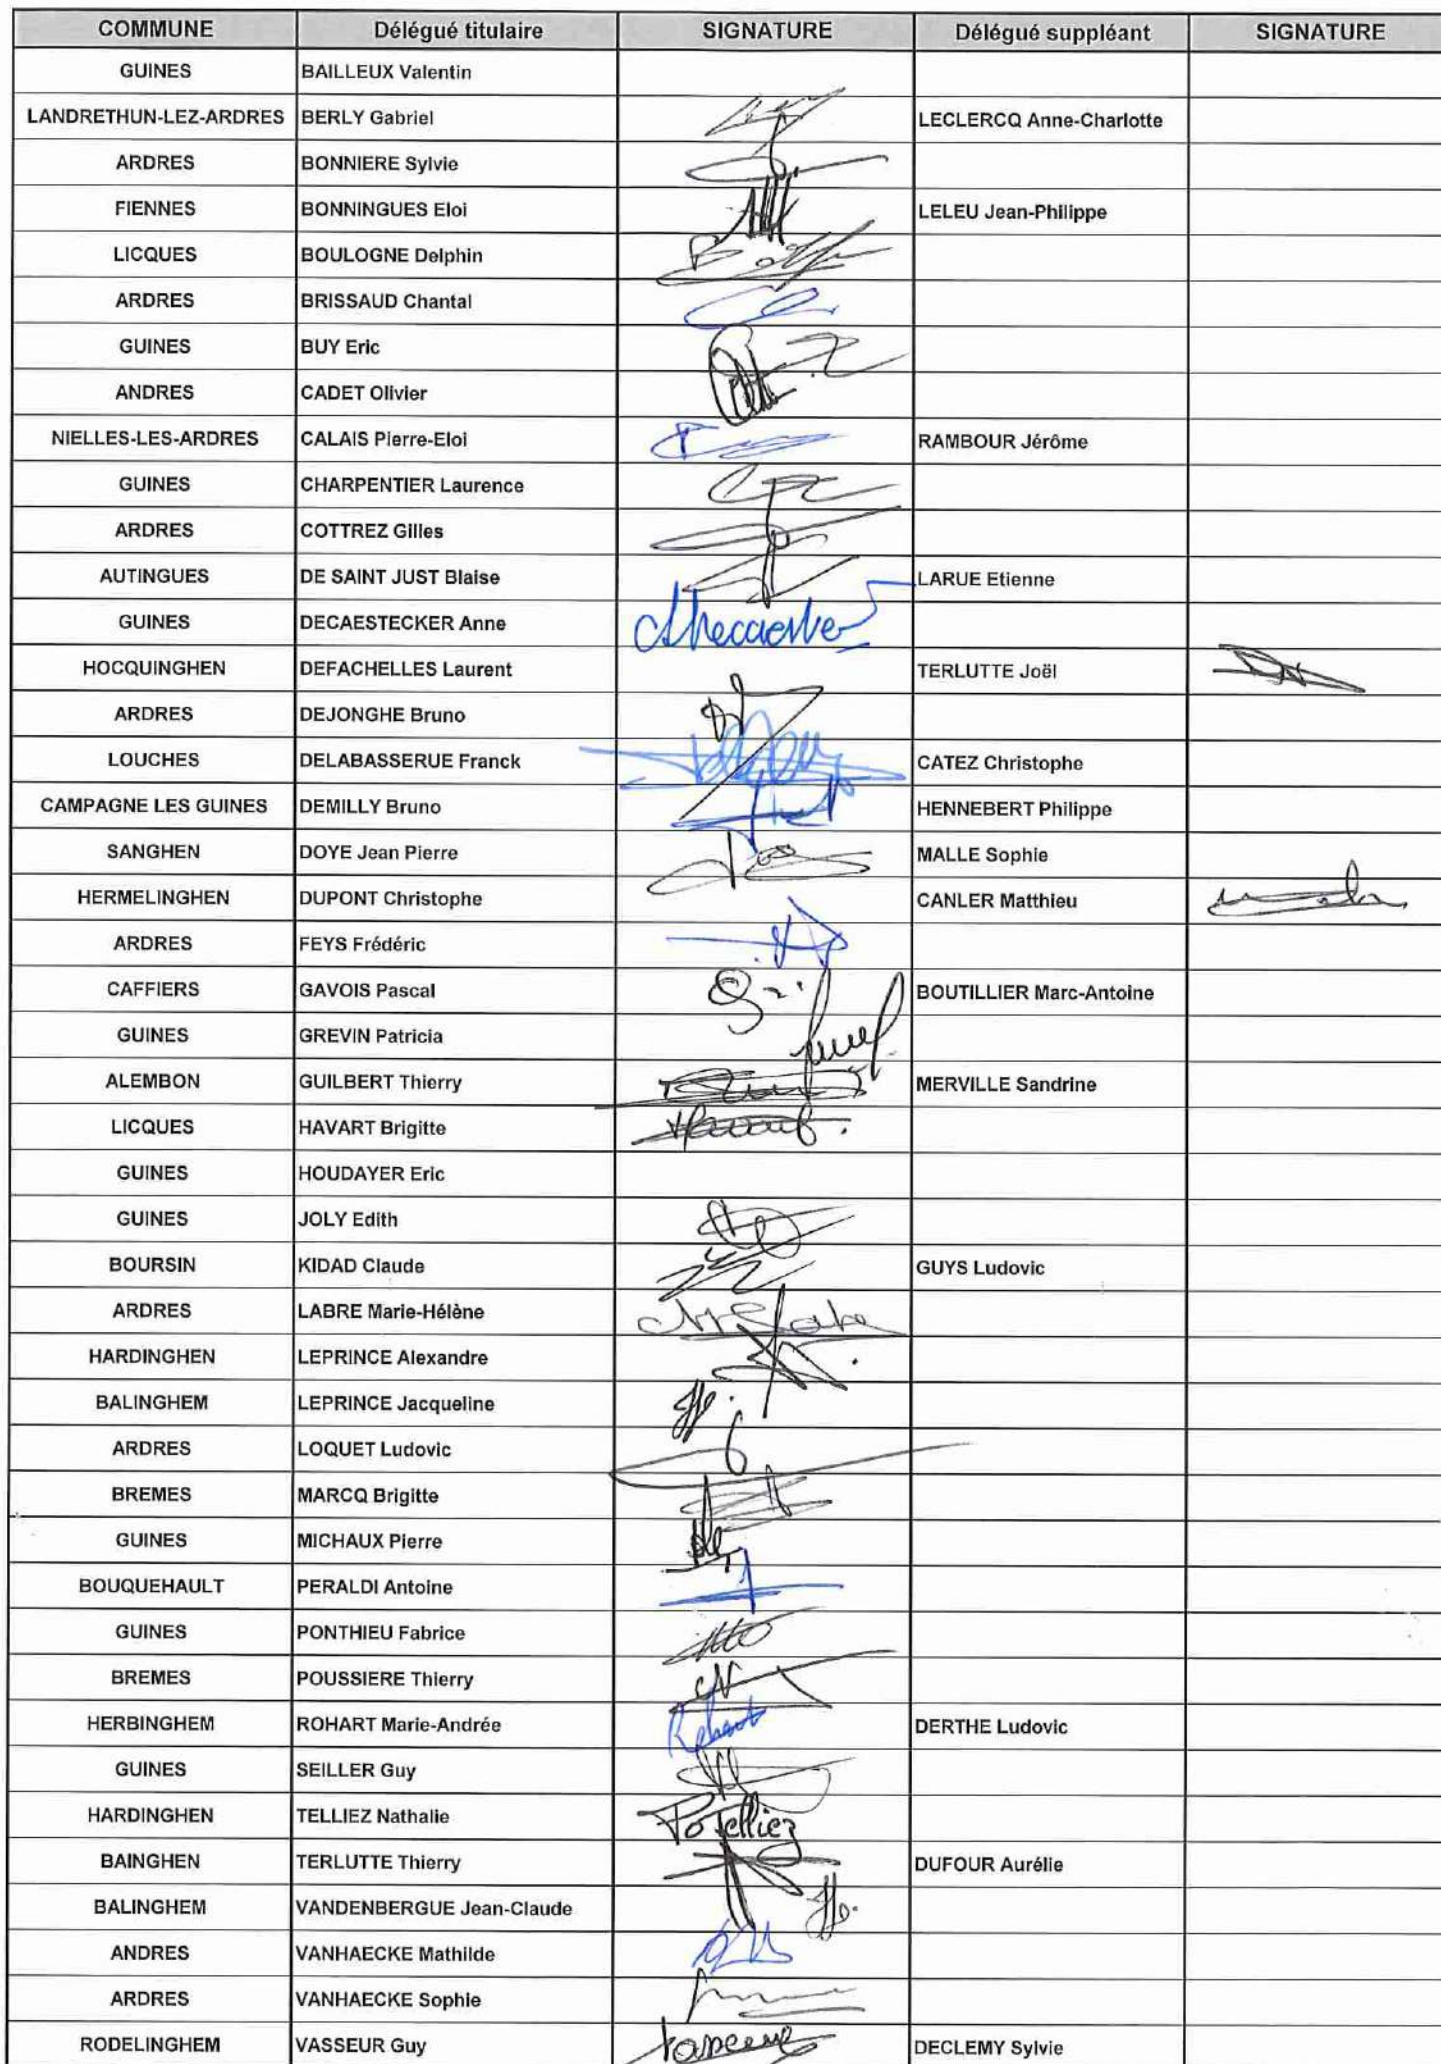 COMMUNE Délégué titulaire SIGNATURE Délégué suppléant SIGNATURE
GUINES BAILLEUX Valentin
LANDRETHUN-LEZ-ARDRES BERLY Gabriel LECLERCQ Anne-Charlotte
ARDRES BONNIERE Sylvie
FIENNES BONNINGUES Eloi LELEU Jean-Philippe
LICQUES BOULOGNE Delphin
ARDRES BRISSAUD Chantal
GUINES BUY Eric
ANDRES CADET Olivier
NIELLES-LES-ARDRES CALAIS Pierre-Eloi RAMBOUR Jérôme
GUINES CHARPENTIER Laurence
ARDRES COTTREZ Gilles
AUTINGUES DE SAINT JUST Blaise LARUE Etienne
GUINES DECAESTECKER Anne
HOCQUINGHEN DEFACHELLES Laurent TERLUTTE Joël
ARDRES DEJONGHE Bruno
LOUCHES DELABASSERUE Franck CATEZ Christophe
CAMPAGNE LES GUINES DEMILLY Bruno HENNEBERT Philippe
SANGHEN DOYE Jean Pierre MALLE Sophie
HERMELINGHEN DUPONT Christophe CANLER Matthieu
ARDRES FEYS Frédéric
CAFFIERS GAVOIS Pascal BOUTILLIER Marc-Antoine
GUINES GREVIN Patricia
ALEMBON GUILBERT Thierry MERVILLE Sandrine
LICQUES HAVART Brigitte
GUINES HOUDAYER Eric
GUINES JOLY Edith
BOURSIN KIDAD Claude GUYS Ludovic
ARDRES LABRE Marie-Hélène
HARDINGHEN LEPRINCE Alexandre
BALINGHEM LEPRINCE Jacqueline
ARDRES LOQUET Ludovic
BREMES MARCQ Brigitte
GUINES MICHAUX Pierre
BOUQUEHAULT PERALDI Antoine
GUINES PONTHIEU Fabrice
BREMES POUSSIERE Thierry
HERBINGHEM ROHART Marie-Andrée Rohart DERTHE Ludovic
GUINES SEILLER Guy
HARDINGHEN TELLIEZ Nathalie Po Telliez
BAINGHEN TERLUTTE Thierry DUFOUR Aurélie
BALINGHEM VANDENBERGUE Jean-Claude
ANDRES VANHAECKE Mathilde
ARDRES VANHAECKE Sophie
RODELINGHEM VASSEUR Guy DECLEMY Sylvie